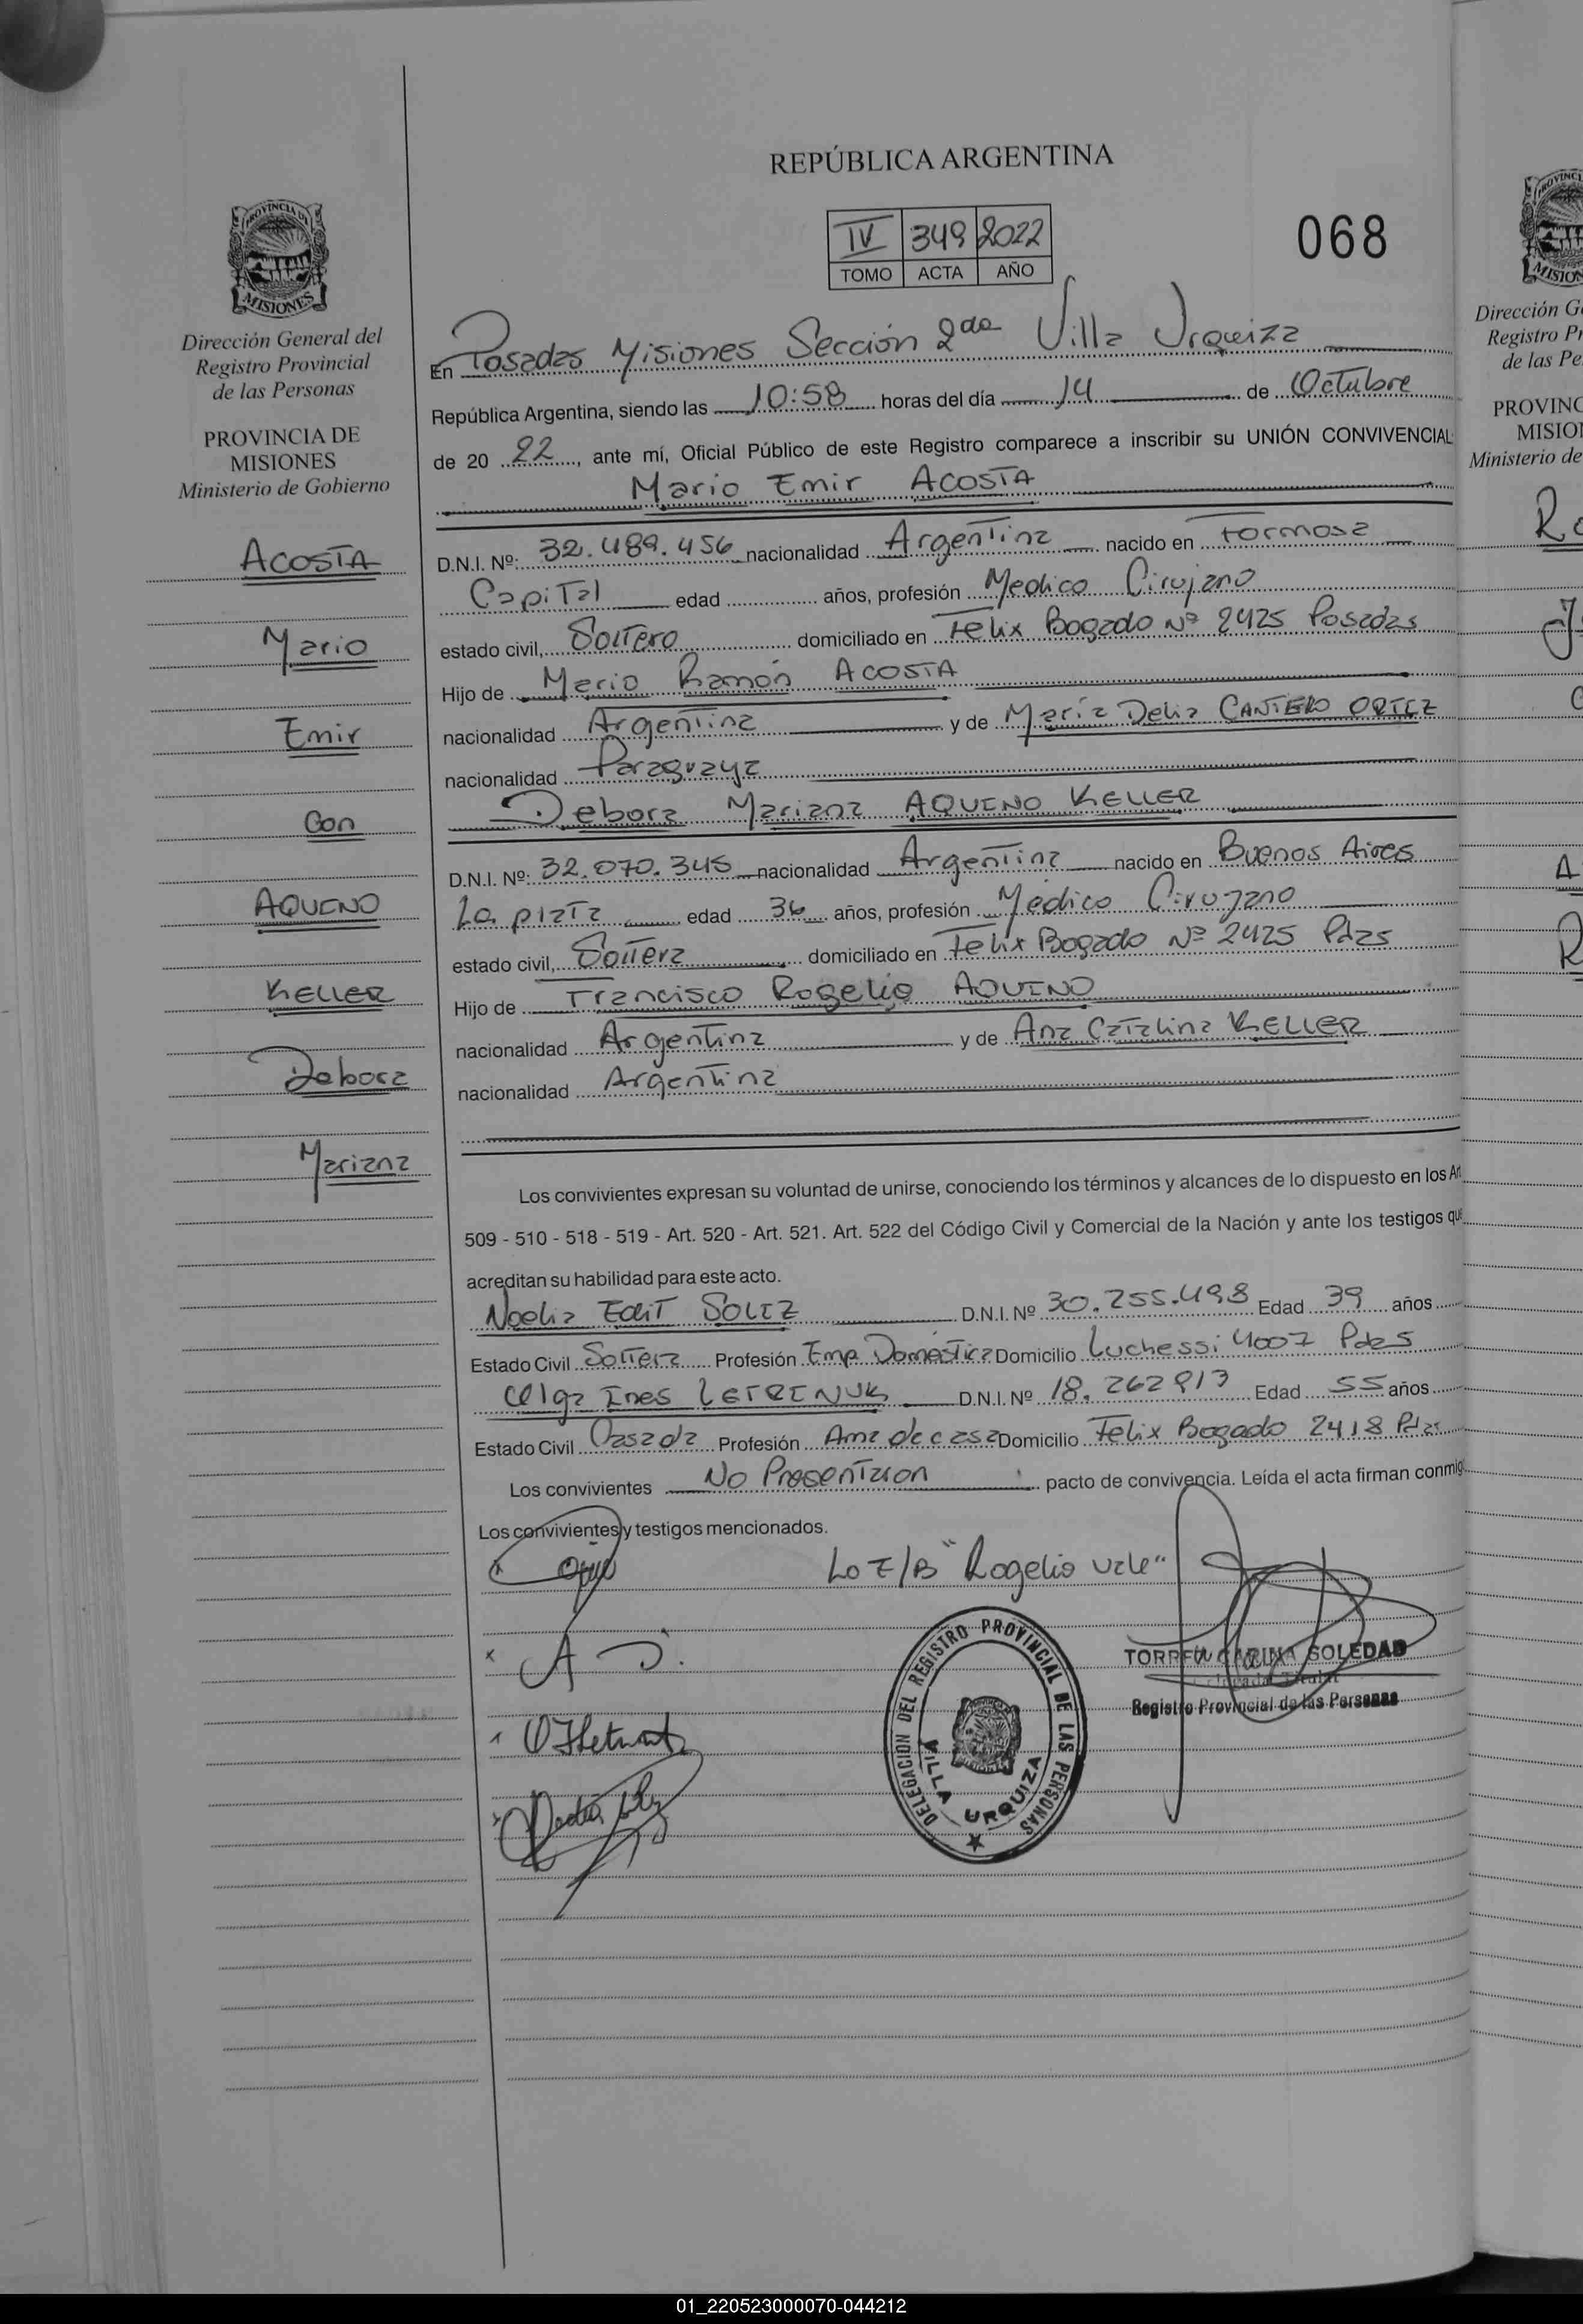 REPÚBLICA ARGENTINA
IV 349 2022
TOMO ACTA AÑO
068
PROVINCIA DE
MISIONES
Dirección General del
Registro Provincial
de las Personas
PROVINCIA DE
MISIONES
Ministerio de Gobierno
ACOSTA
Mario
Emir
Con
AQUINO
KELLER
Debora
Mariana
En Posadas Misiones Sección 2da Villa Urquiza
República Argentina, siendo las 10:58 horas del día 14 de Octubre
de 20 22, ante mí, Oficial Público de este Registro comparece a inscribir su UNIÓN CONVIVENCIAL
Mario Emir ACOSTA
D.N.I. Nº: 32.489.456 nacionalidad Argentina nacido en Formosa
Capital edad años, profesión Medico Cirujano
estado civil, Soltero domiciliado en Felix Bogado Nº 2425 Posadas
Hijo de Mario Ramón ACOSTA
nacionalidad Argentina y de María Delia CANTERO ORTIZ
nacionalidad Paraguaya
Debora Mariana AQUINO KELLER
D.N.I. Nº: 32.070.345 nacionalidad Argentina nacido en Buenos Aires
La plata edad 36 años, profesión Médico Cirujano
estado civil, Soltera domiciliado en Felix Bogado Nº 2425 Pdas
Hijo de Francisco Rogelio AQUINO
nacionalidad Argentina y de Ana Catalina KELLER
nacionalidad Argentina
Los convivientes expresan su voluntad de unirse, conociendo los términos y alcances de lo dispuesto en los Art
509 - 510 - 518 - 519 - Art. 520 - Art. 521. Art. 522 del Código Civil y Comercial de la Nación y ante los testigos que
acreditan su habilidad para este acto.
Noelia Edit SOLIZ D.N.I. Nº 30.255.498 Edad 39 años
Estado Civil Soltera Profesión Emp Domestica Domicilio Luchessi 4007 Pdas
Olga Ines LETRINUK D.N.I. Nº 18.262913 Edad 55 años
Estado Civil Casada Profesión Ama de casa Domicilio Felix Bogado 2418 Pdas
Los convivientes No Presentaron pacto de convivencia. Leída el acta firman conmigo
Los convivientes y testigos mencionados.
Lo E/B "Rogelio vale"
DELEGACIÓN DEL REGISTRO PROVINCIAL DE LAS PERSONAS
VILLA URQUIZA
CARINA SOLEDAD
Titular
Registro Provincial de las Personas
Dirección G
Registro Pr
de las Pe
PROVINC
MISIO
Ministerio de
01_220523000070-044212